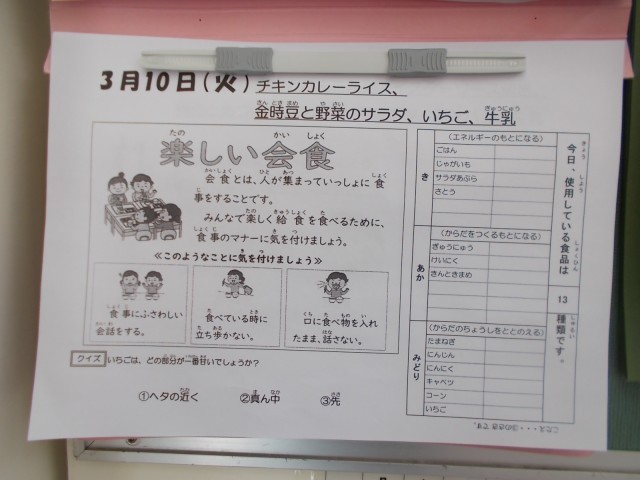 3月10日(火)チキンカレーライス、
金時豆と野菜のサラダ、いちご、牛乳
楽しい会食
会食とは、人が集まっていっしょに食
事をすることです。
みんなで楽しく給食を食べるために、
食事のマナーに気を付けましょう。
≪このようなことに気を付けましょう≫
食事にふさわしい
会話をする。
食べている時に
立ち歩かない。
口に食べ物を入れ
たまま、話さない。
クイズ いちごは、どの部分が一番甘いでしょうか?
①ヘタの近く ②真ん中 ③先
今日、使用している食品は
13
種類です。
き
(エネルギーのもとになる)
ごはん
じゃがいも
サラダあぶら
さとう
あか
(からだをつくるもとになる)
ぎゅうにゅう
けいにく
きんときまめ
みどり
(からだのちょうしをととのえる)
たまねぎ
にんじん
にんにく
キャベツ
コーン
いちご